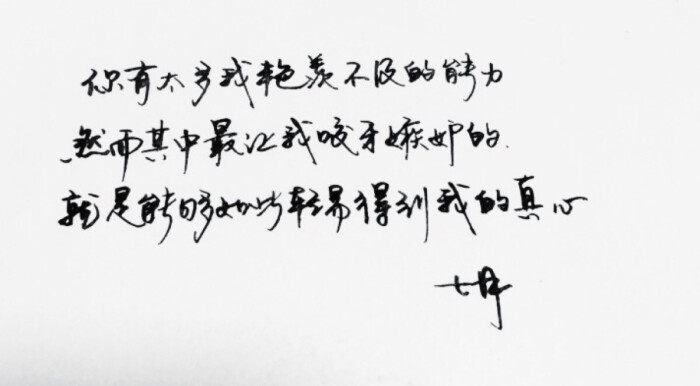 你有太多我艳羡不及的能力
然而其中最让我咬牙嫉妒的
就是能够如此轻易得到我的真心
七月